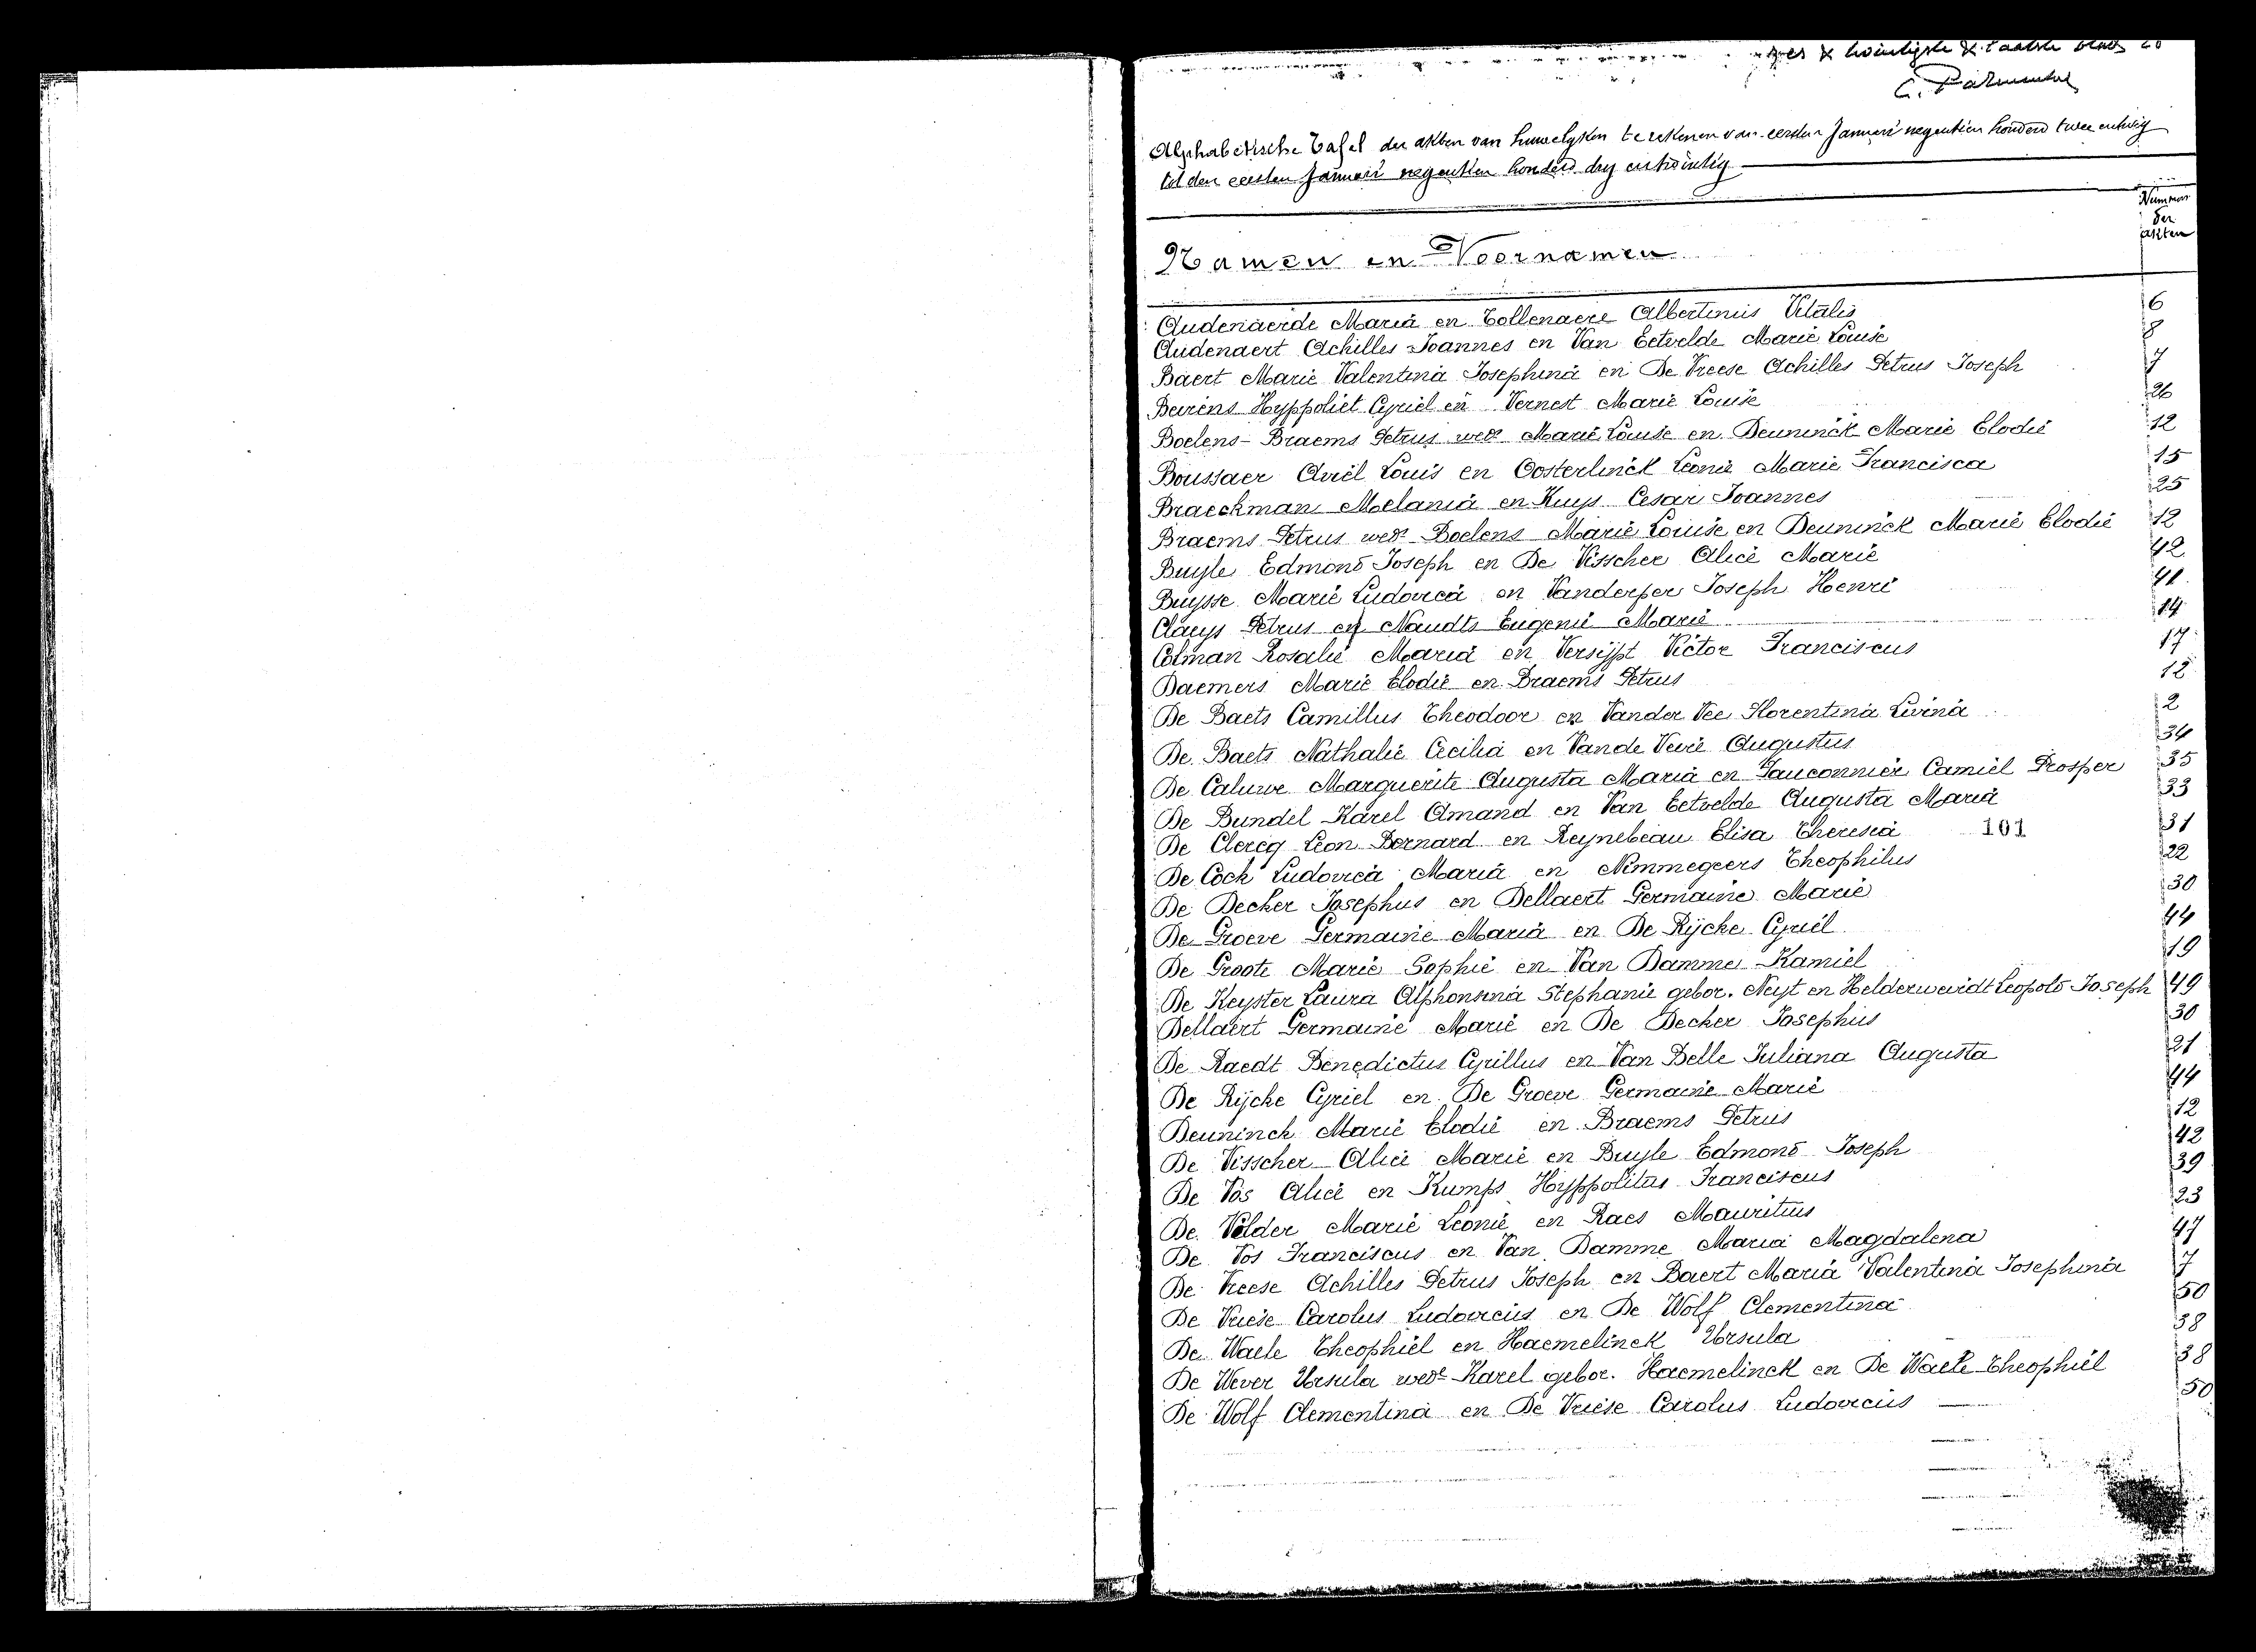 zes & twintigste & laatste blad
Alphabetische Tafel der akten van huwelyken te rekenen van eersten Januari negentien honderd twee entwig
tot den eersten Januari negentien honderd dry entwintig
Nummers
der
akten
Namen en Voornamen
Audenaerde Maria en Tollenaere Albertinus Vitalis 6
Audenaert Achilles Joannes en Van Eetvelde Marie Louise 8
Baert Marie Valentina Josephina en De Vreese Achilles Petrus Joseph 7
Beirens Hyppoliet Cyriel en Vernest Marie Louise 26
Boelens-Braems Petrus wedr Marie Louise en Deuninck Marie Elodie 12
Boussaer Aviel Louis en Oosterlinck Leonie Marie Francisca 15
Braeckman Melania en Kuys Cesar Joannes 25
Braems Petrus wedr Boelens Marie Louise en Deuninck Marie Elodie 12
Buyle Edmond Joseph en De Visscher Alice Marie 42
Buysse Marie Ludovica en Vanderper Joseph Henri 41
Claeys Petrus en Naudts Eugenie Marie 14
Colman Rosalie Maria en Versijpt Victor Franciscus 17
Daemers Marie Elodie en Braems Petrus 12
De Baets Camillus Theodoor en Vander Vee Florentina Livina 2
De Baets Nathalie Cecilia en Vande Veire Augustus 34
De Caluwe Marguerite Augusta Maria en Fauconnier Camiel Prosper 35
De Bundel Karel Amand en Van Eetvelde Augusta Maria 33
De Clercq Leon Bernard en Reynebeau Elisa Theresia 101 31
De Cock Ludovica Maria en Nimmegeers Theophilus 22
De Decker Josephus en Dellaert Germaine Marie 30
De Groeve Germaine Maria en De Rijcke Cyriel 44
De Groote Marie Sophie en Van Damme Kamiel 19
De Keyster Laura Alphonsina Stephanie gebor. Neyt en Helderweirdt Leopold Joseph 49
Dellaert Germaine Marie en De Decker Josephus 30
De Raedt Benedictus Cyrillus en Van Belle Juliana Augusta 21
De Rijcke Cyriel en De Groeve Germaine Marie 44
Deuninck Marie Elodie en Braems Petrus 12
De Visscher Alice Marie en Buyle Edmond Joseph 42
De Vos Alice en Kumps Hyppolitus Franciscus 39
De Velder Marie Leonie en Raes Mauritius 23
De Vos Franciscus en Van Damme Maria Magdalena 47
De Vreese Achilles Petrus Joseph en Baert Maria Valentina Josephina 7
De Vriese Carolus Ludovicus en De Wolf Clementina 50
De Waele Theophiel en Haemelinck Ursula 38
De Wever Ursula wede Karel gebor. Haemelinck en De Waele Theophiel 38
De Wolf Clementina en De Vriese Carolus Ludovicus 50